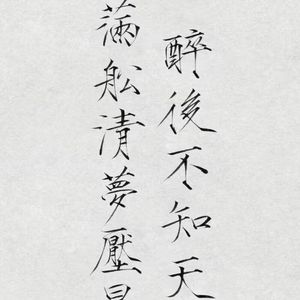 醉後不知天
滿舩清夢壓